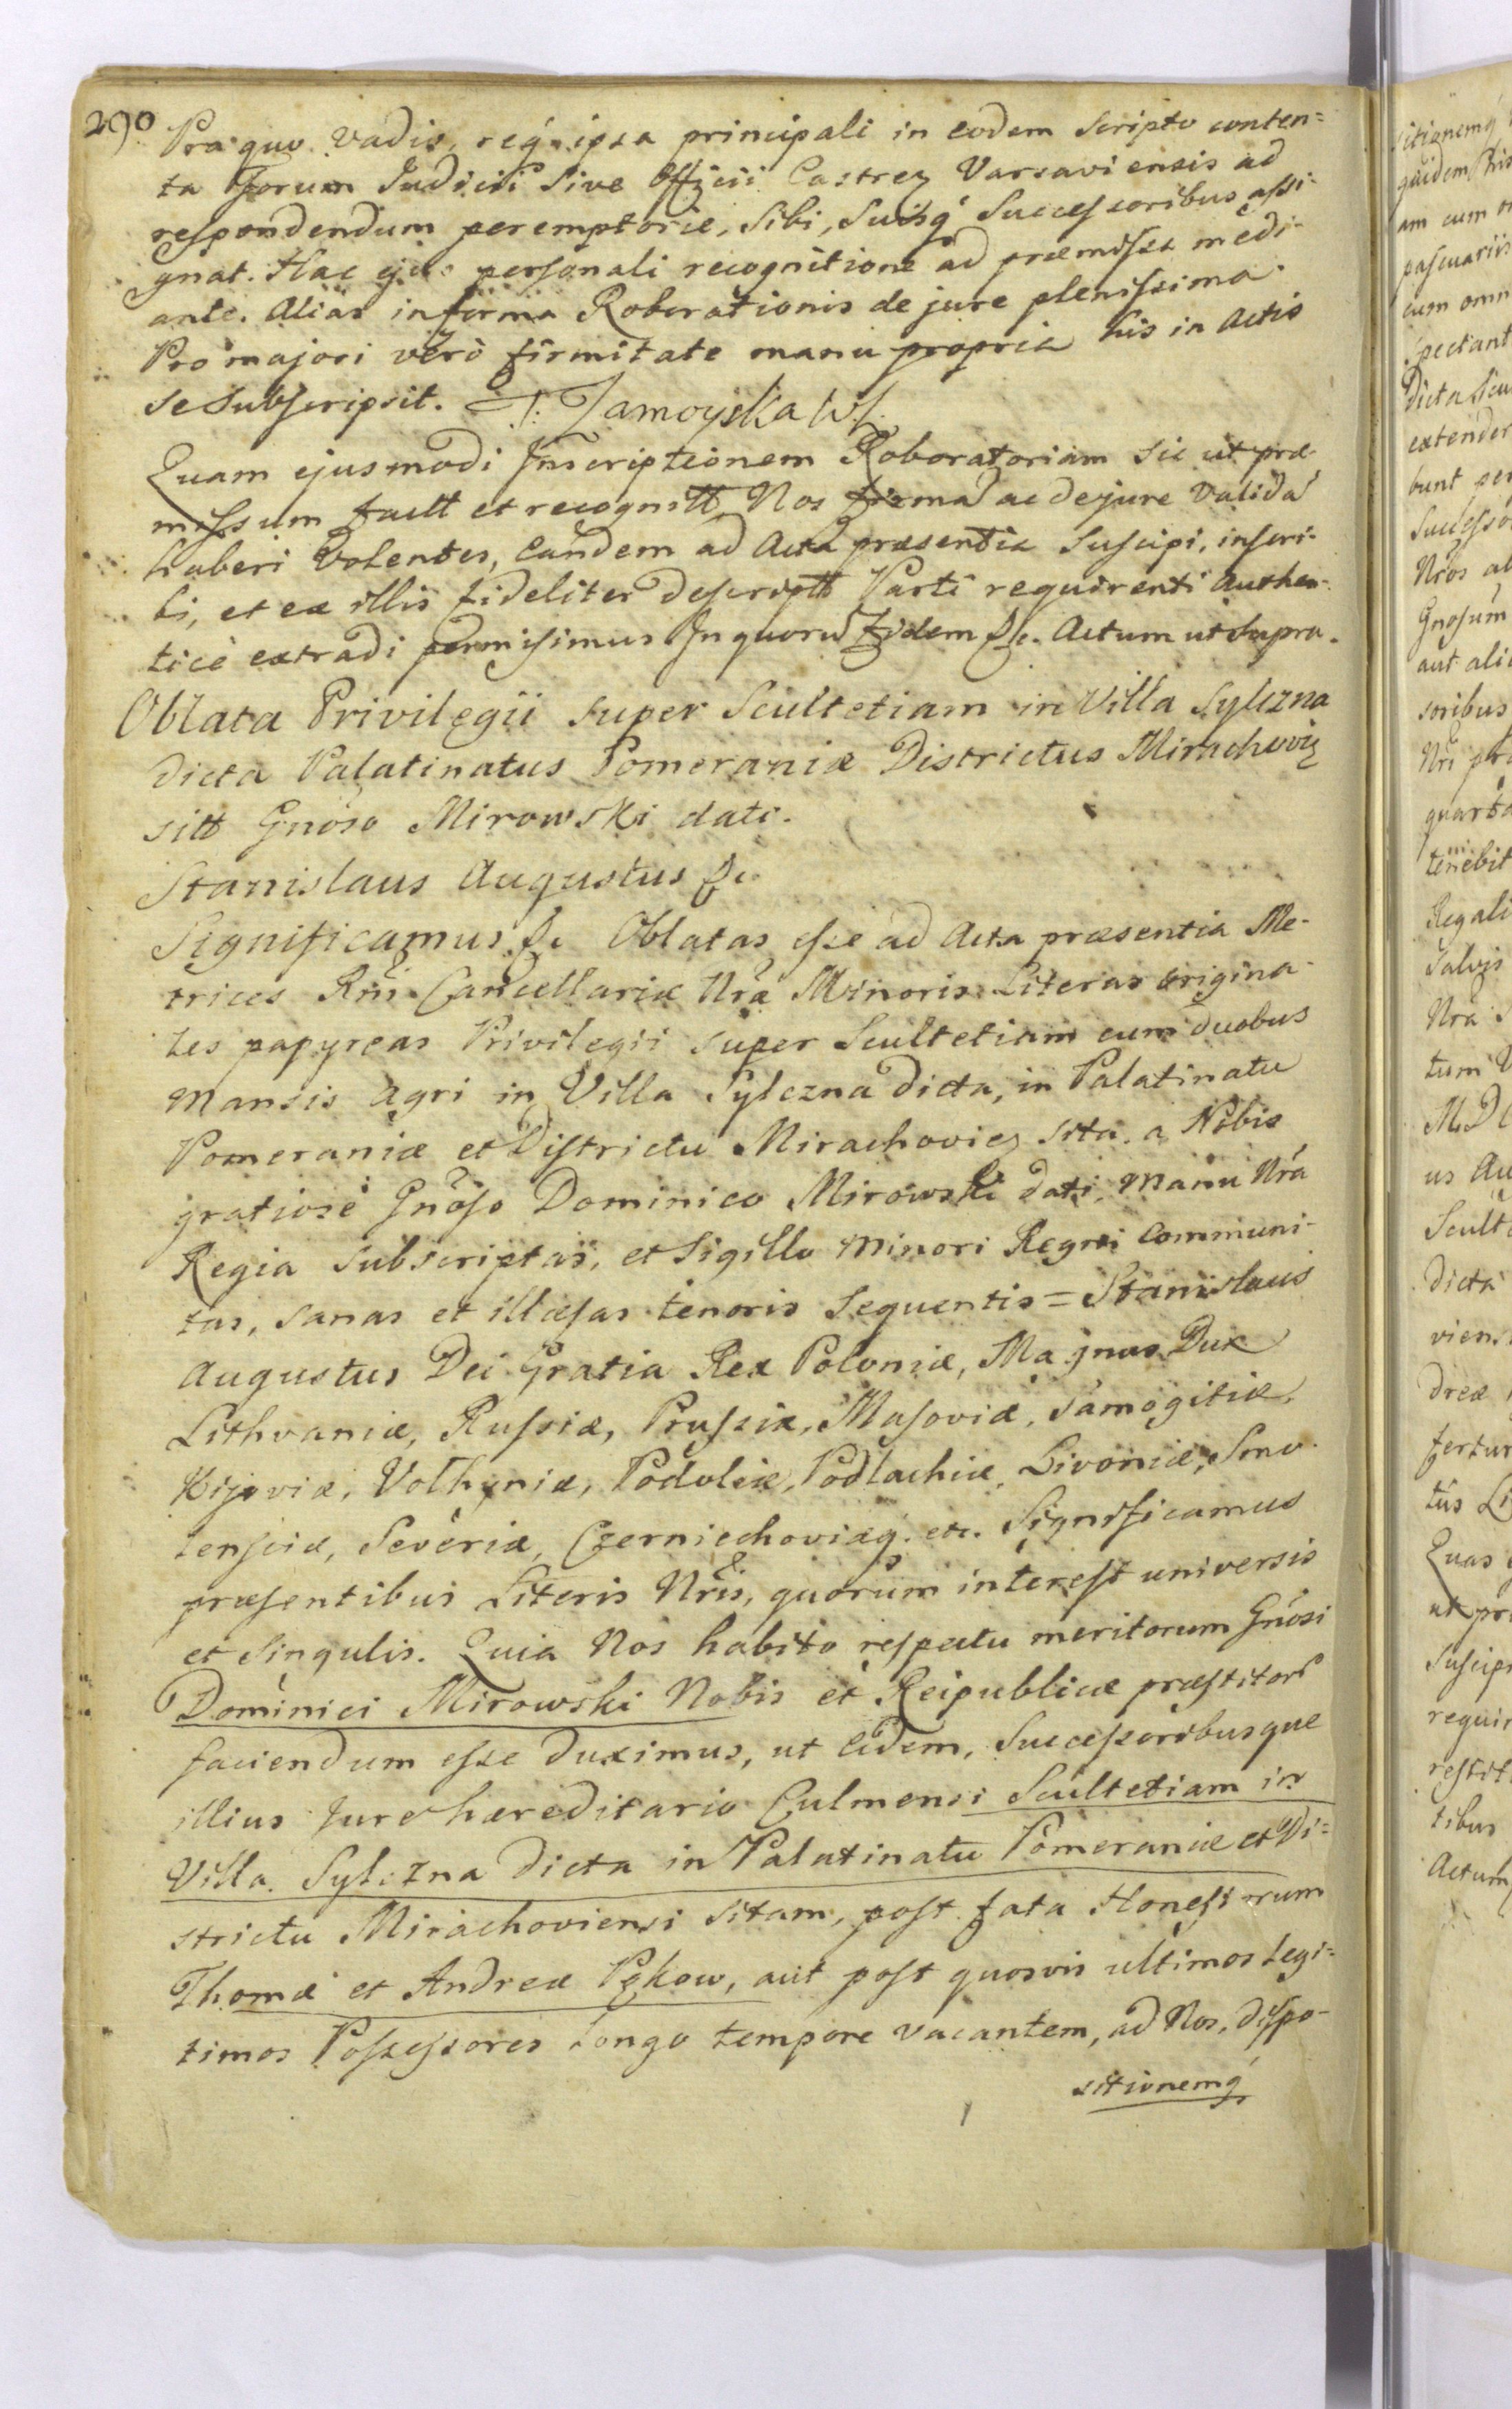 290
Pro quo vadio, reqʒ ipsa principali in eodem scripto conten=
ta Forum Judicii sive Officii Castreʒ Varsaviensis ad
respondendum peremptorie, sibi, suisq́ successoribus assi-
gnat. Hac ejus personali recognitione ad præmissa medi-
ante. Alias in forma Roborationis de jure plenissima
Pro majori verò firmitate manu propria his in Actis
se subscripsit. Zamoyska
Quam ejusmodi Inscriptionem Roboratoriam sic ut præ-
missum factt et recognitt Nos firmá ac de jure validá
haberi volentes, Eandem ad Acta præsentia suscipi, inscri-
bi, et ex illis fideliter descriptt Parti requirenti authen-
ticè extradi permisimus In quorū Fidem &c. Actum ut supra.
Oblata Privilegii super Scultetiam in Villa Sylczna
dicta Palatinatus Pomeraniæ Districtus Mirachovieʒ
sitt Gnõso Mirowski dati.
Stanislaus Augustus &c.
Significamus &c Oblatas esse ad Acta præsentia Me-
trices Rni Cancellariæ Nræ Minoris Literas origina-
les papyreas Privilegii super Scultetiam cum duobus
Mansis Agri in Villa Sylczna dicta, in Palatinatu
Pomeraniæ et Districtu Mirachovieʒ sita. a Nobis
gratiosè Gnõso Dominico Mirowski dati, Manu Nrá
Regia subscriptas, et Sigillo Minori Regni communi-
tas, sanas et illæsas tenoris sequentis = Stanislaus
Augustus Dei Gratia Rex Poloniæ, Magnus Dux
Lithvaniæ, Russiæ, Prussiæ, Masoviæ, Samogitiæ,
Kijoviæ, Volhyniæ, Podoliæ, Podlachiæ, Livoniæ, Smo-
lensciæ, Severiæ, Czerniechoviæq́. etc. Significamus
præsentibus Literis Nrĩs, quorum interest universis
et singulis. Quia Nos habito respectu meritorum Gnõsi
Dominici Mirowski Nobis et Reipublicæ præstitorū
faciendum esse duximus, ut Eidem, Successoribusque
illius Jure hæreditario Culmensi Scultetiam in
Villa Sylczna dicta in Palatinatu Pomeraniæ et Di=
strictu Mirachoviensi sitam, post fata Honestorum
Thomæ et Andreæ Pękow, aut post quosvis ultimos legi=
timos Possessores longo tempore vacantem, ad Nos, dispo-
sitionemq́